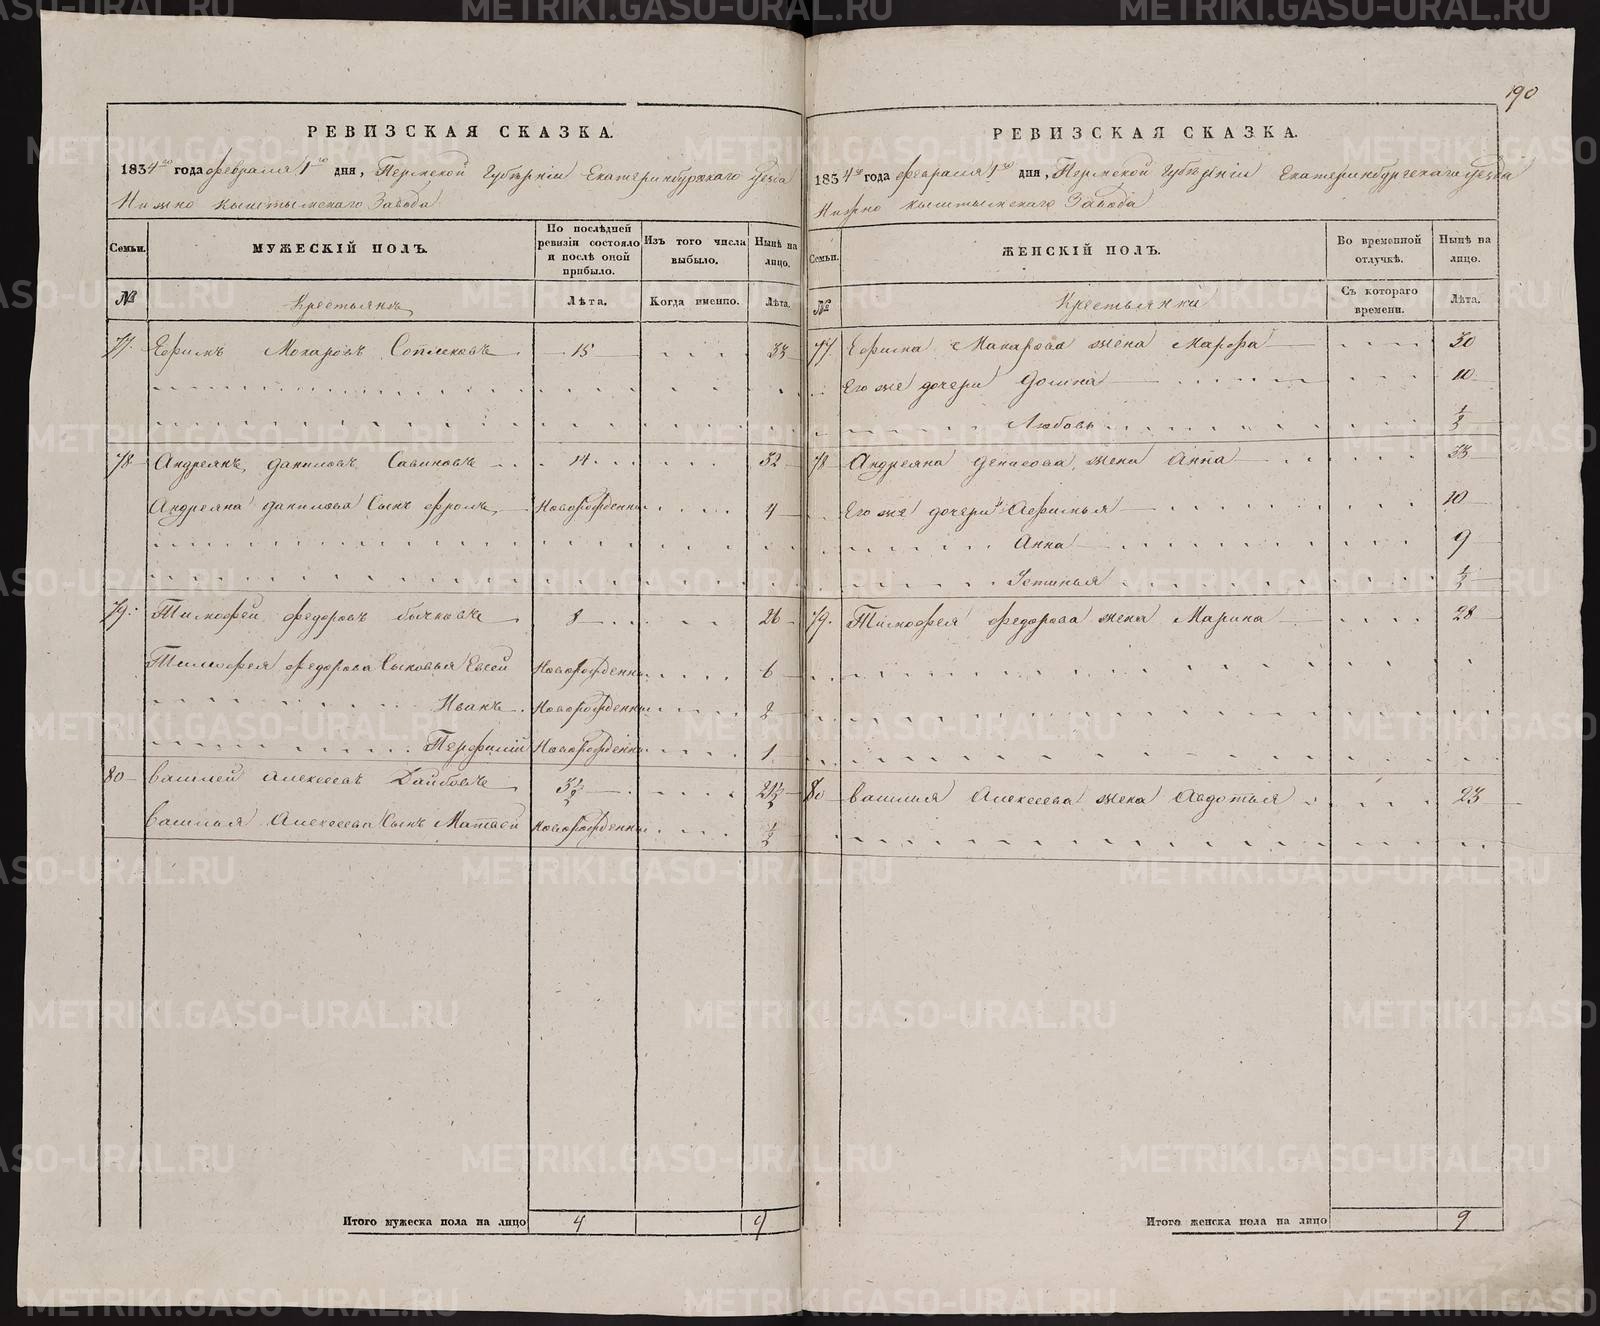 190
РЕВИЗСКАЯ СКАЗКА.
1834го года февраля 1го дня, Пермской Губернiи Екатеринбургскаго Уезда
Нижно Кыштымскаго Завода
Семьи. МУЖЕСКIЙ ПОЛЪ. По послѣдней ревизiи состояло и послѣ оной прибыло. Изъ того числа выбыло. Нынѣ на лицо.
№ Крестьянъ Лѣта. Когда именно. Лѣта.
77. Ефимъ Макаровъ 15 33
78 Андреянъ Даниловъ Савиновъ 14 32
Андреяна Данилова Сынъ Фролъ Новорожденны 4
79. Тимофей Федоровъ Бычковъ 8 26
Тимофея Федорова Сыновья Евсей Новорожденны 6
Иванъ Новорожденны 2
Перфилiй Новорожденны 1
80 Василей Алексеевъ 3½ 21½
Василья Алексеева Сынъ Матвей Новорожденны ½
Итого мужеска пола на лицо 4 9
РЕВИЗСКАЯ СКАЗКА.
1834го года февраля 1го дня, Пермской Губернiи Екатеринбургскаго Уезда
Нижно Кыштымскаго Завода
Семьи. ЖЕНСКIЙ ПОЛЪ. Во временной отлучкѣ. Нынѣ на лицо.
№ Крестьянки Съ котораго времени. Лѣта.
77. Ефима Макарова жена Марфа 30
Его же дочери Домна 10
Любовь ½
78 Андреяна жена Анна 33
Его же дочери Афимья 10
Анна 9
Устинья ½
79. Тимофея Федорова жена Марина 28
80 Василья Алексеева жена Авдотья 23
Итого женска пола на лицо 9
METRIKI.GASO-URAL.RU